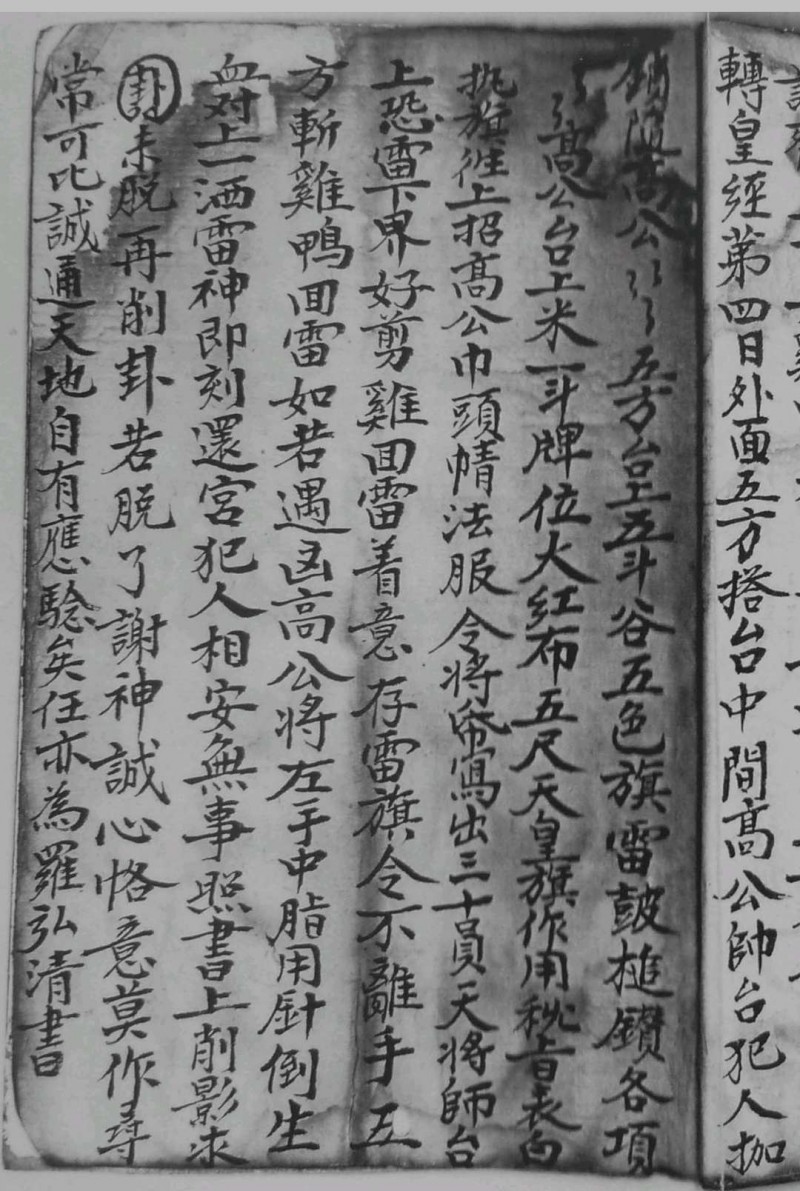 轉皇經第四日外面五方搭台中間髙公帥台犯人枷
鎖隨高公〻〻五方台上五斗谷五色旗雷鼓槌鑽各項
〻〻髙公台上米一斗牌位大紅布五尺天皇旗作用秘旨表白
执旗徃上招髙公巾頭幘法服令将㡬寫出三十員天将師台
上恐雷下界好剪雞囬雷着意存雷旗令不離手五
方斬雞鴨囬雷如若遇凶高公将左手中脂用針倒生
血对上一洒雷神即刻還宮犯人相安無事照書上削影求
卦未脱再削卦若脱了謝神誠心恪意莫作尋
常可比誠通天地自有應騐矣任亦為羅弘清書